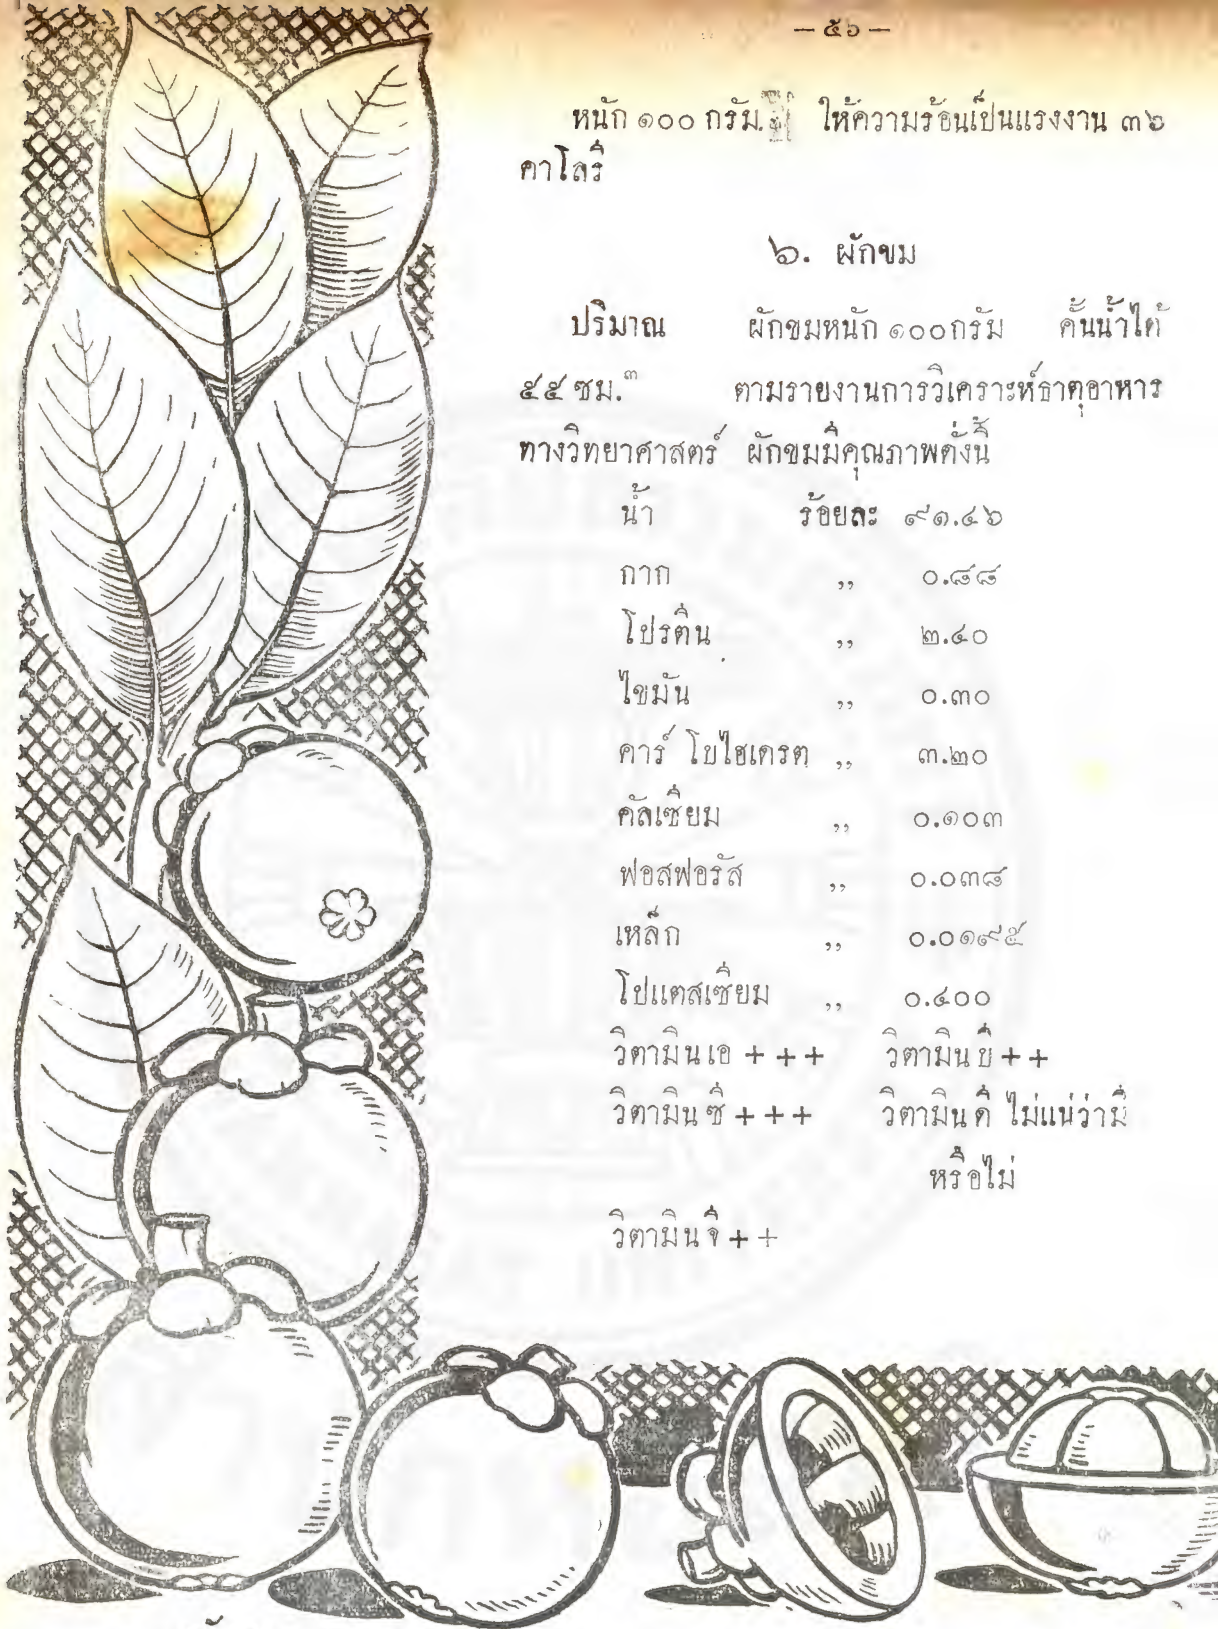 — ๕๖ —
หนัก ๑๐๐ กรัม ให้ความร้อนเป็นแรงงาน ๓๖
คาโลรี่
๖. ผักขม
ปริมาณ ผักขมหนัก ๑๐๐กรัม คั้นน้ำได้
๕๕ ซม.³ ตามรายงานการวิเคราะห์ธาตุอาหาร
ทางวิทยาศาสตร์ ผักขมมีคุณภาพดั่งนี้
น้ำ ร้อยละ ๙๑.๔๖
กาก ,, ๐.๘๘
โปรตีน ,, ๒.๔๐
ไขมัน ,, ๐.๓๐
คาร์โบไฮเดรต ,, ๓.๒๐
คัลเซี่ยม ,, ๐.๑๐๓
ฟอสฟอรัส ,, ๐.๐๓๘
เหล็ก ,, ๐.๐๑๙๕
โปแตสเซี่ยม ,, ๐.๔๐๐
วิตามินเอ + + + วิตามินบี + +
วิตามินซี + + + วิตามินดี ไม่แน่ว่ามี
หรือไม่
วิตามินจี + +